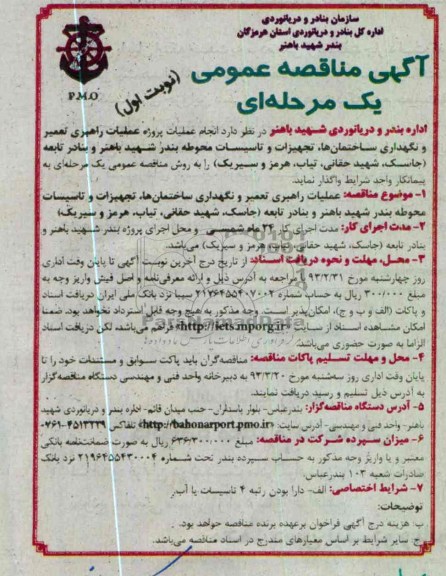 سازمان بنادر و دریانوردی
اداره کل بنادر و دریانوردی استان هرمزگان
بندر شهید باهنر
P.M.O
آگهی مناقصه عمومی
یک مرحله‌ای
(نوبت اول)
اداره بندر و دریانوردی شهید باهنر در نظر دارد انجام عملیات پروژه عملیات راهبری تعمیر
و نگهداری ساختمان‌ها، تجهیزات و تاسیسات محوطه بندر شهید باهنر و بنادر تابعه
(جاسک، شهید حقانی، تیاب، هرمز و سیریک) را به روش مناقصه عمومی یک مرحله‌ای به
پیمانکار واجد شرایط واگذار نماید.
۱- موضوع مناقصه: عملیات راهبری تعمیر و نگهداری ساختمان‌ها، تجهیزات و تاسیسات
محوطه بندر شهید باهنر و بنادر تابعه (جاسک، شهید حقانی، تیاب، هرمز و سیریک)
۲- مدت اجرای کار: مدت اجرای کار ۲۴ ماه شمسی و محل اجرای پروژه بندر شهید باهنر و
بنادر تابعه (جاسک، شهید حقانی، تیاب، هرمز و سیریک) می‌باشد.
۳- محل، مهلت و نحوه دریافت اسناد: از تاریخ درج آخرین نوبت آگهی تا پایان وقت اداری
روز چهارشنبه مورخ ۹۳/۲/۳۱ با مراجعه به آدرس ذیل و ارائه معرفی‌نامه و اصل فیش واریز وجه به
مبلغ ۳۰۰/۰۰۰ ریال به حساب شماره ۲۱۷۶۴۵۵۲۰۷۰۰۲ سیبا نزد بانک ملی ایران دریافت اسناد
و پاکات (الف و ب و ج)، امکان‌پذیر است. وجه مذکور به هیچ وجه قابل استرداد نخواهد بود. ضمنا
امکان مشاهده اسناد از سایت «http://iets.mporg.ir» فراهم می‌باشد، لکن دریافت اسناد
الزاما به صورت حضوری می‌باشد.
۴- محل و مهلت تسلیم پاکات مناقصه: مناقصه‌گران باید پاکت سوابق و مستندات خود را تا
پایان وقت اداری روز سه‌شنبه مورخ ۹۳/۳/۲۰ به دبیرخانه واحد فنی و مهندسی دستگاه مناقصه‌گزار
به آدرس ذیل تسلیم و رسید دریافت نمایند.
۵- آدرس دستگاه مناقصه‌گزار: بندرعباس- بلوار پاسداران- جنب میدان قائم- اداره بندر و دریانوردی شهید
باهنر- واحد فنی و مهندسی- آدرس سایت: «http://bahonarport.pmo.ir» تلفاکس ۴۵۱۳۲۳۹-۰۷۶۱
۶- میزان سپرده شرکت در مناقصه: مبلغ ۶۳۶/۳۰۰/۰۰۰ ریال به صورت ضمانت‌نامه بانکی
معتبر و یا واریز وجه مذکور به حساب سپرده بندر تحت شماره ۲۱۹۶۴۵۵۴۳۰۰۰۴ نزد بانک
صادرات شعبه ۱۰۳ بندرعباس.
۷- شرایط اختصاصی: الف- دارا بودن رتبه ۴ تاسیسات یا آب.
توضیحات:
ب: هزینه درج آگهی فراخوان برعهده برنده مناقصه خواهد بود.
ج: سایر شرایط بر اساس معیارهای مندرج در اسناد مناقصه می‌باشد.